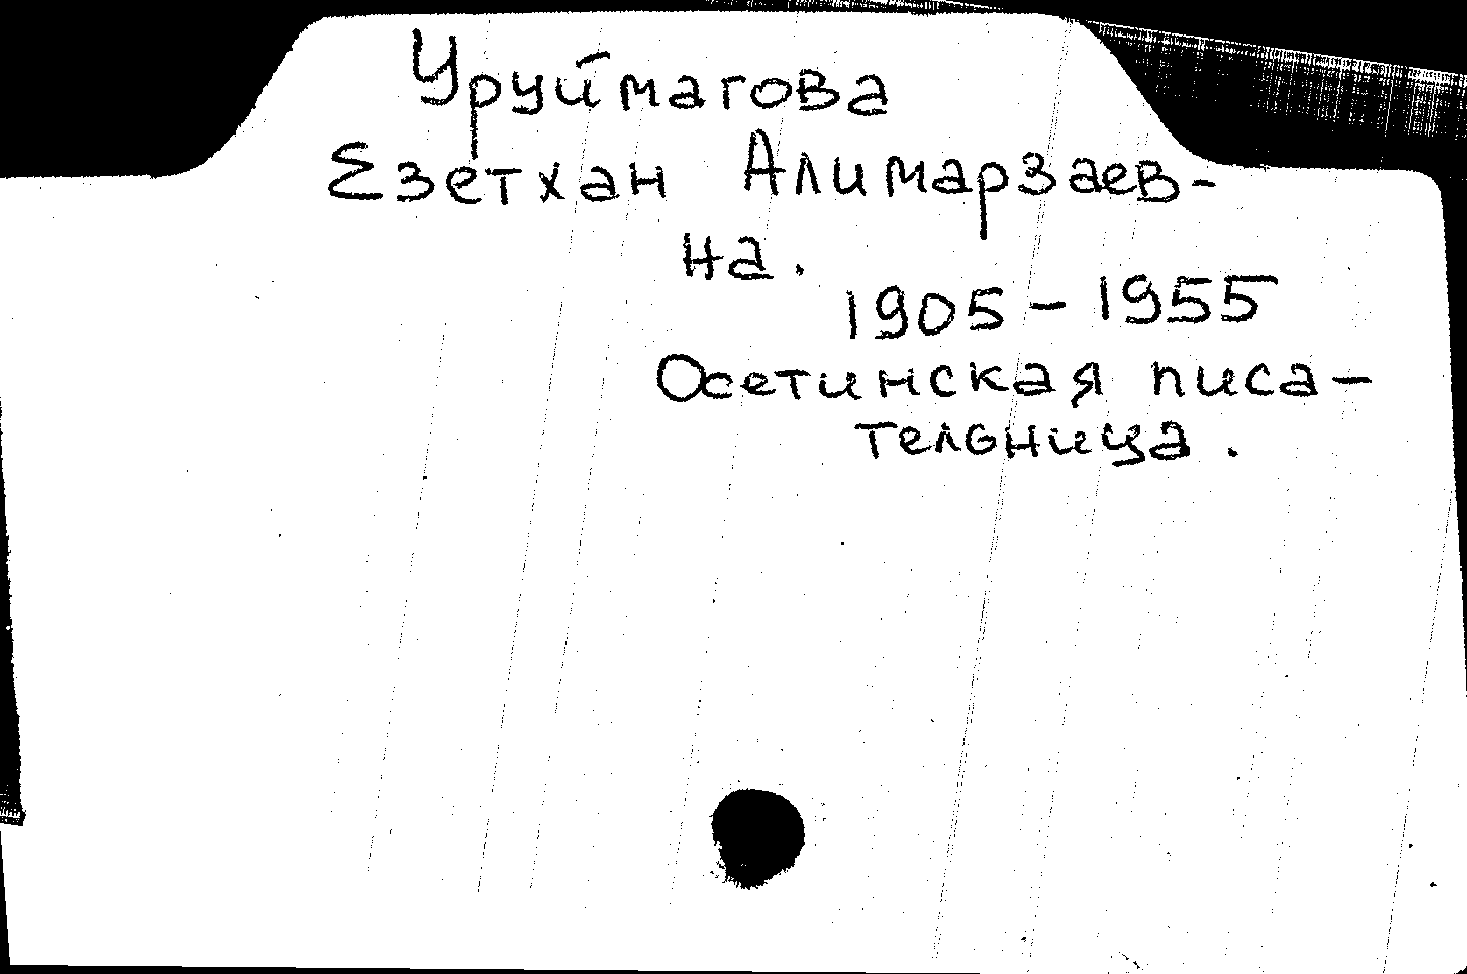 Уруймагова
Езетхан Алимарзаев-
на.
1905 - 1955
Осетинская писа-
тельница.